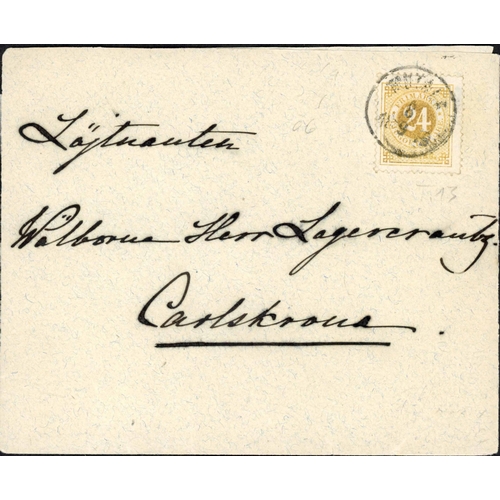 24
Löjtnanten
Wälborne Herr Lagercrantz.
Carlskrona.